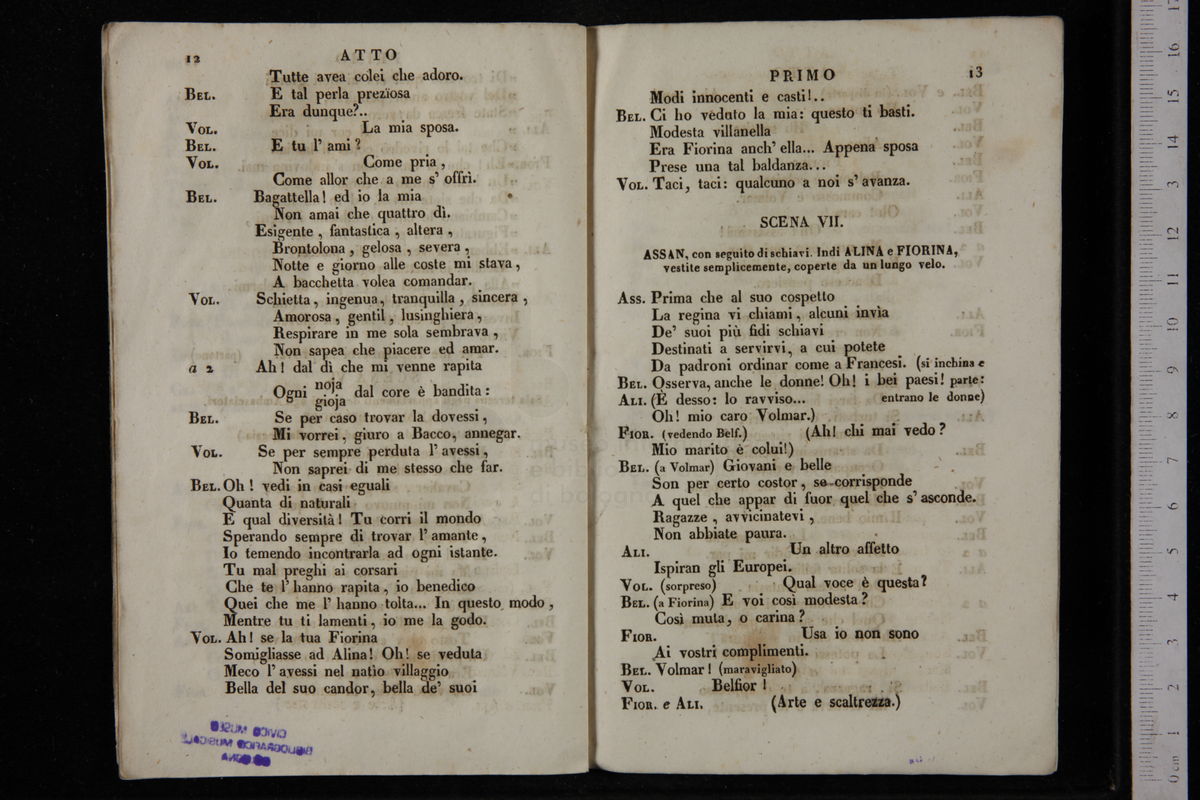 12
ATTO
Tutte avea colei che adoro.
BEL. E tal perla preziosa
Era dunque?..
VOL. La mia sposa.
BEL. E tu l' ami?
VOL. Come pria,
Come allor che a me s' offrì.
BEL. Bagattella! ed io la mia
Non amai che quattro dì.
Esigente, fantastica, altera,
Brontolona, gelosa, severa,
Notte e giorno alle coste mi stava,
A bacchetta volea comandar.
VOL. Schietta, ingenua, tranquilla, sincera,
Amorosa, gentil, lusinghiera,
Respirare in me sola sembrava,
Non sapea che piacere ed amar.
a 2 Ah! dal dì che mi venne rapita
Ogni noja dal core è bandita:
gioja
BEL. Se per caso trovar la dovessi,
Mi vorrei, giuro a Bacco, annegar.
VOL. Se per sempre perduta l' avessi,
Non saprei di me stesso che far.
BEL. Oh! vedi in casi eguali
Quanta di naturali
E qual diversità! Tu corri il mondo
Sperando sempre di trovar l' amante,
Io temendo incontrarla ad ogni istante.
Tu mal preghi ai corsari
Che te l' hanno rapita, io benedico
Quei che me l' hanno tolta... In questo modo,
Mentre tu ti lamenti, io me la godo.
VOL. Ah! se la tua Fiorina
Somigliasse ad Alina! Oh! se veduta
Meco l' avessi nel natìo villaggio
Bella del suo candor, bella de' suoi
CIVICO MUSEO
BIBLIOGRAFICO MUSICALE
BOLOGNA
PRIMO
13
Modi innocenti e casti!..
BEL. Ci ho veduto la mia: questo ti basti.
Modesta villanella
Era Fiorina anch' ella... Appena sposa
Prese una tal baldanza...
VOL. Taci, taci: qualcuno a noi s' avanza.
SCENA VII.
ASSAN, con seguito di schiavi. Indi ALINA e FIORINA,
vestite semplicemente, coperte da un lungo velo.
ASS. Prima che al suo cospetto
La regina vi chiami, alcuni invia
De' suoi più fidi schiavi
Destinati a servirvi, a cui potete
Da padroni ordinar come a Francesi. (si inchina e
BEL. Osserva, anche le donne! Oh! i bei paesi! parte:
ALI. (È desso: lo ravviso... entrano le donne)
Oh! mio caro Volmar.)
FIOR. (vedendo Belf.) (Ah! chi mai vedo?
Mio marito è colui!)
BEL. (a Volmar) Giovani e belle
Son per certo costor, se corrisponde
A quel che appar di fuor quel che s' asconde.
Ragazze, avvicinatevi,
Non abbiate paura.
ALI. Un altro affetto
Ispiran gli Europei.
VOL. (sorpreso) Qual voce è questa?
BEL. (a Fiorina) E voi così modesta?
Così muta, o carina?
FIOR. Usa io non sono
Ai vostri complimenti.
BEL. Volmar! (maravigliato)
VOL. Belfior!
FIOR. e ALI. (Arte e scaltrezza.)